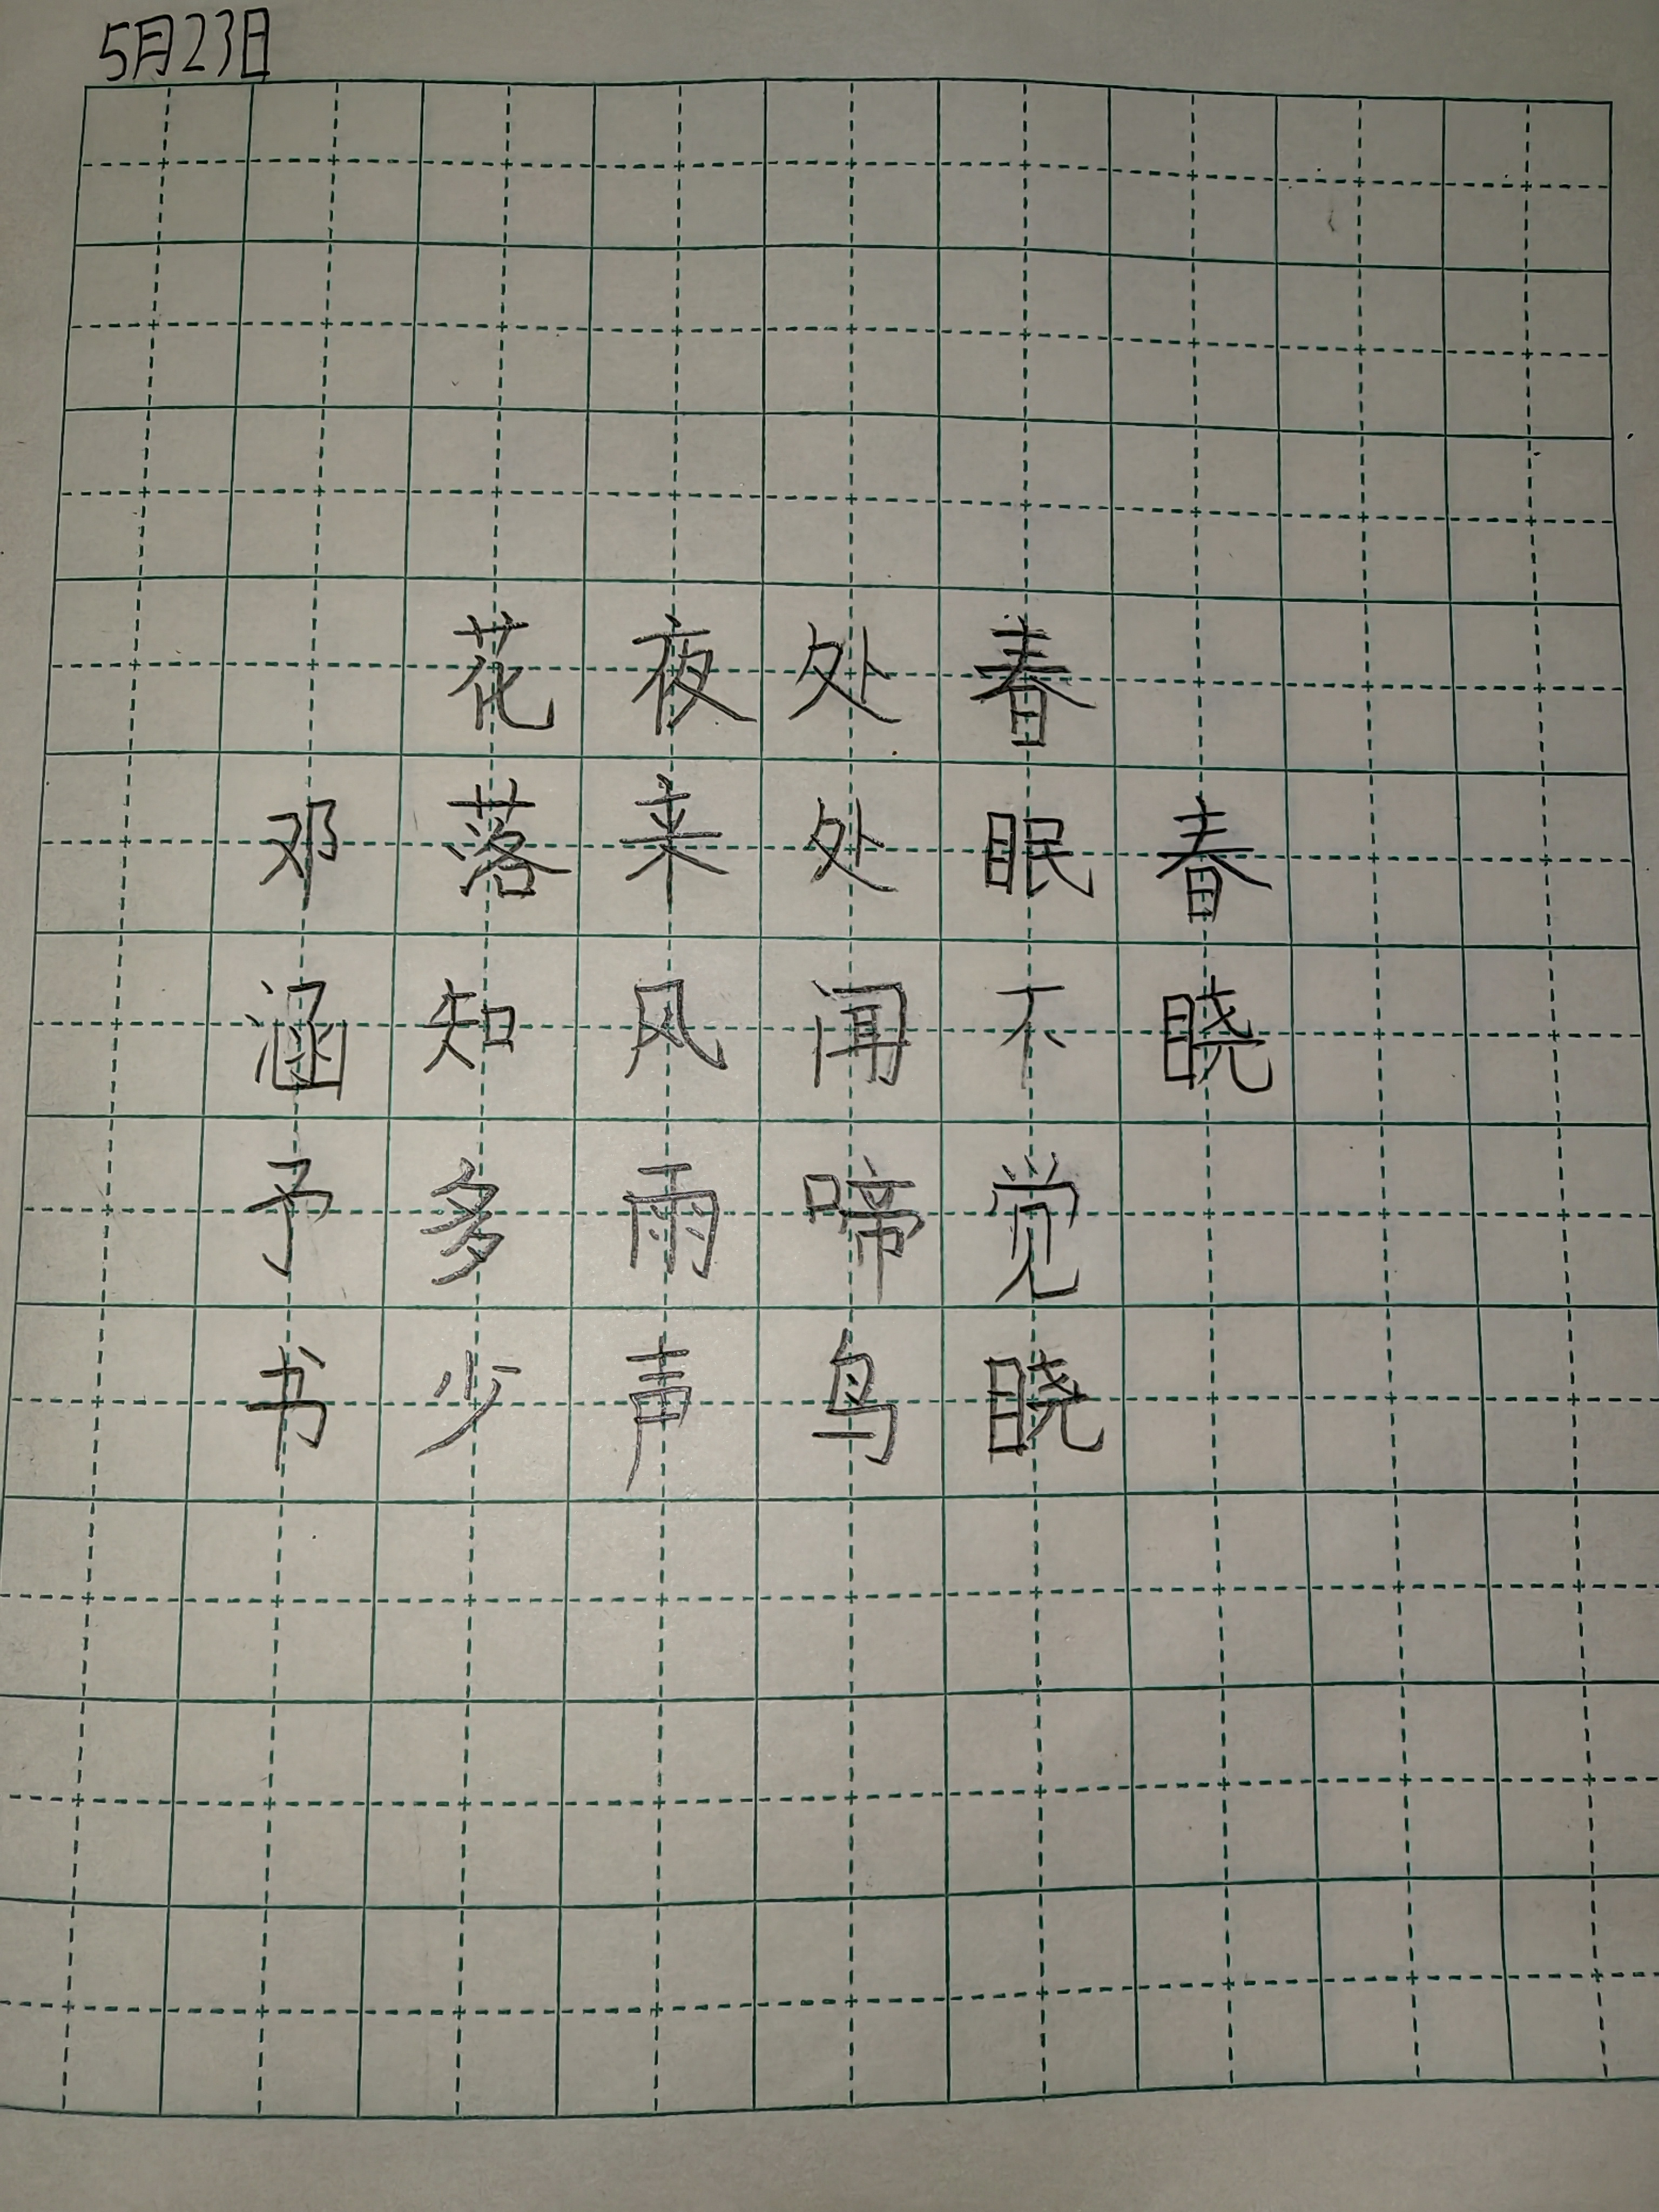 5月23日
春晓
春眠不觉晓
处处闻啼鸟
夜来风雨声
花落知多少
邓涵予书